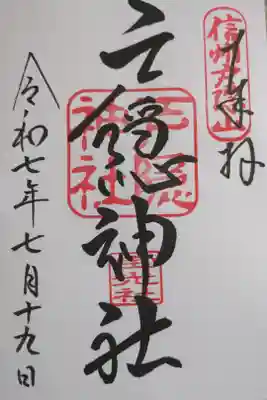 奉拝
信州戸隠山
戸隠神社
戸隠神社
宝光社
令和七年七月十九日